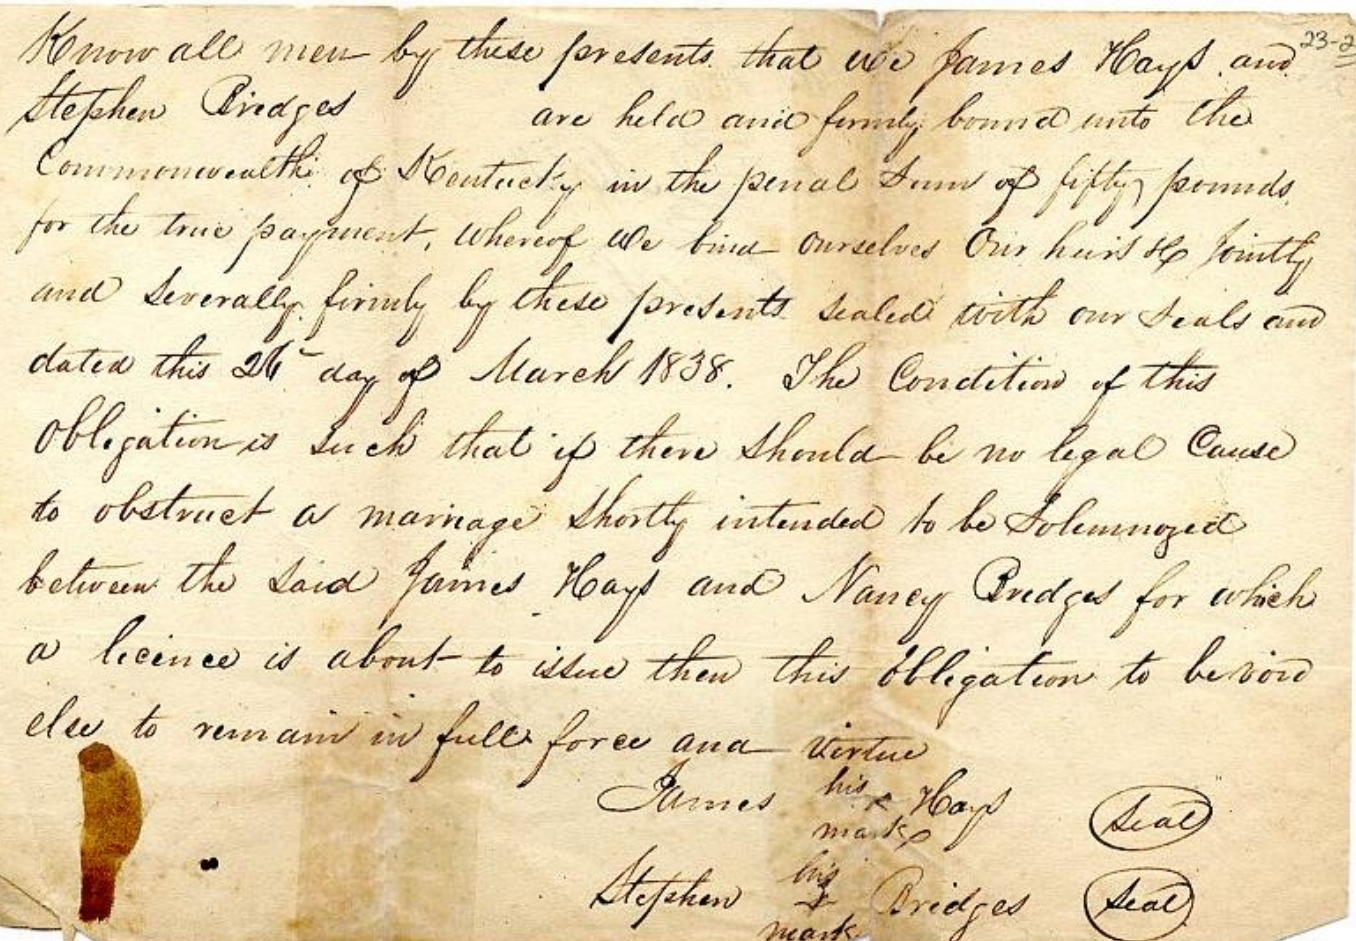 Know all men by these presents that we James Hays and
23-2
Stephen Bridges are held and firmly bound unto the
Commonwealth of Kentucky in the penal Sum of fifty pounds
for the true payment, whereof We bind ourselves Our heirs &c Jointly
and Severally firmly by these presents sealed with our Seals and
dated this 26 day of March 1838. The Condition of this
Obligation is Such that if there Should be no legal Cause
to obstruct a marriage Shortly intended to be Solemnozed
between the Said James Hays and Nancy Bridges for which
a licence is about to issue then this Obligation to be void
else to remain in full force and virtue
James his x mark Hays Seal
Stephen his x mark Bridges Seal